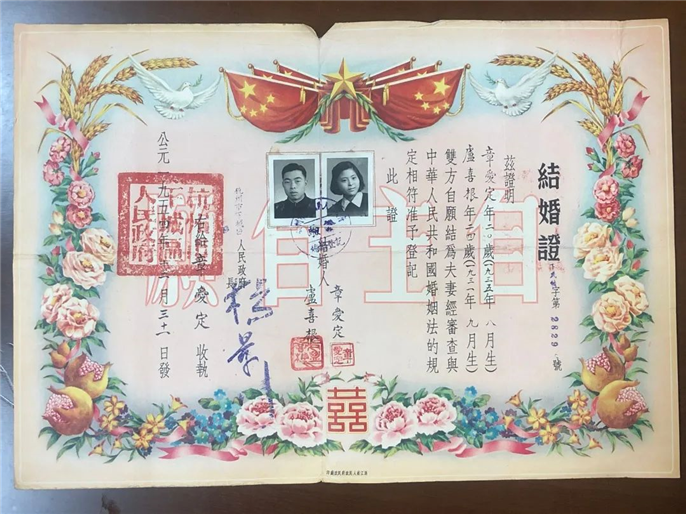 結婚證
字第2829號
茲證明
章愛定年二〇歲(一九三五年八月生)
盧喜根年二四歲(一九三一年九月生)
雙方自願結為夫妻經審查與
中華人民共和國婚姻法的規
定相符准予登記
此證
結婚人 章愛定
盧喜根
人民政府
長
右給章愛定收執
公元一九五四年 月三十一日發
杭州市下城區人民政府
囍